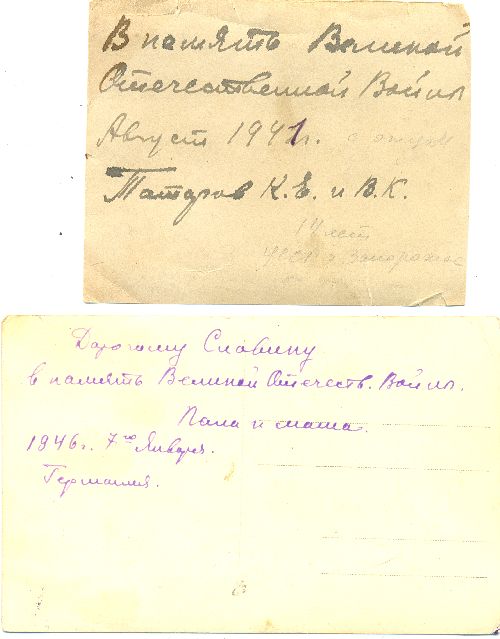 В память Великой
Отечественной Войны
Август 1941г. с отцом
Татаров К.Е. и В.К.
14 лет
г. Запорожье
Дорогому Славику
в память Великой Отечеств. Войны.
Папа и мама.
1946г. 7го Января.
Германия.